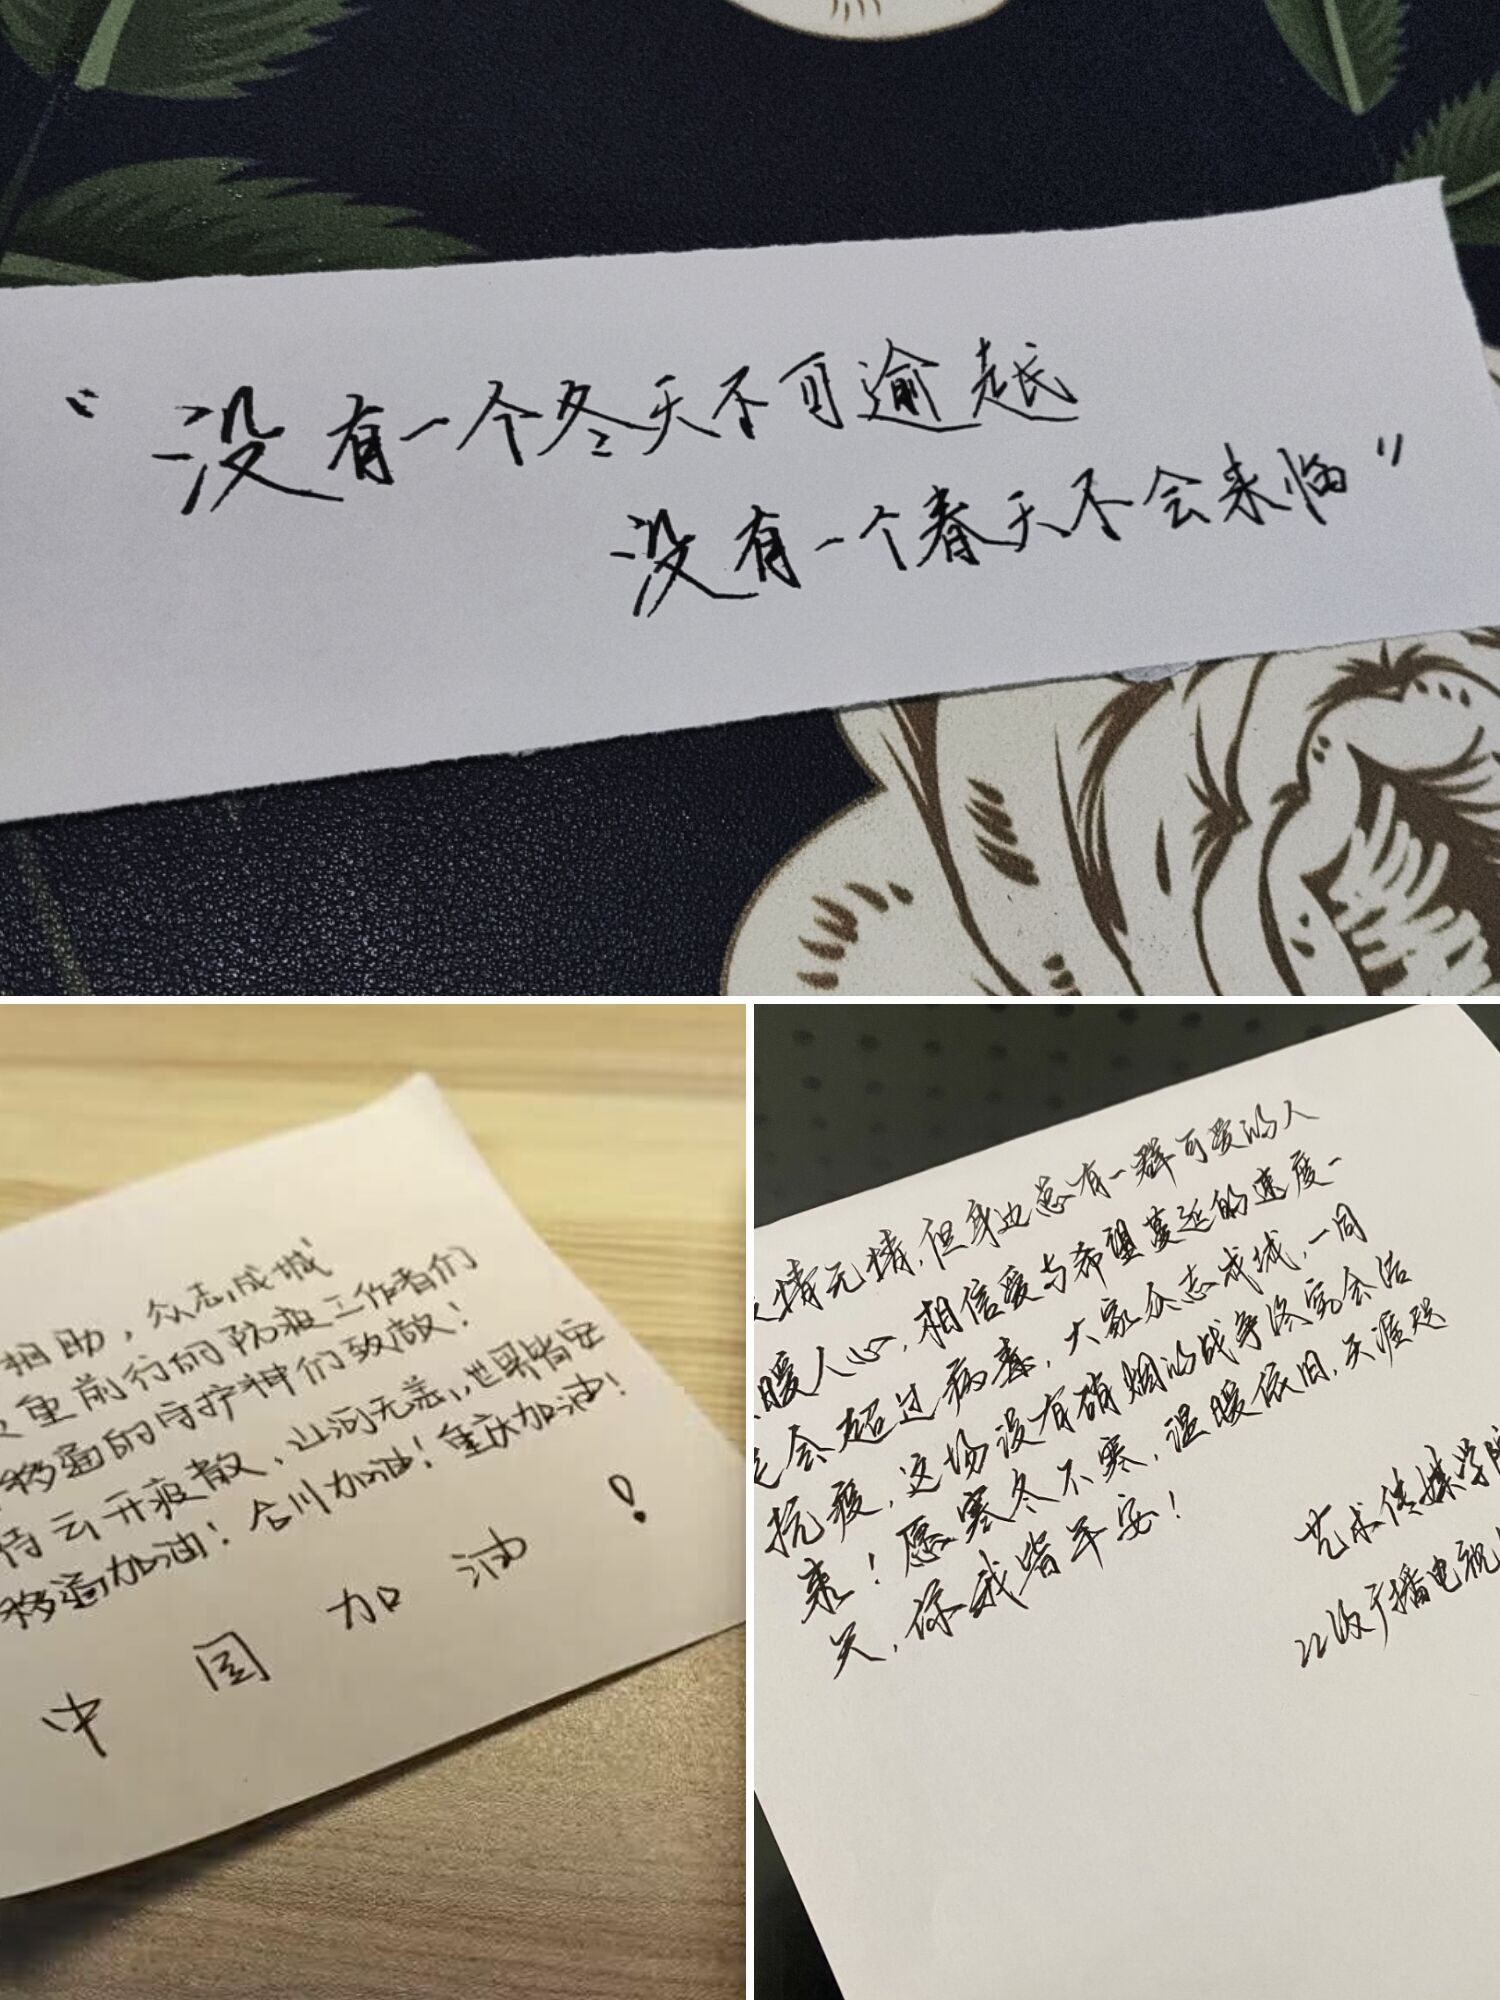 “没有一个冬天不可逾越
没有一个春天不会来临”
相助，众志成城
重前行的防疫工作者们
移通的守护神们致敬！
待云开疫散，山河无恙，世界皆安
移通加油！合川加油！重庆加油！
中国加油！
情无情，但身边总有一群可爱的人
暖人心，相信爱与希望蔓延的速度一
定会超过病毒，大家众志成城，一同
抗疫，这场没有硝烟的战争终究会结
束！愿寒冬不寒，温暖依旧，天涯咫
尺，你我皆平安！
艺术传媒学院
22级广播电视